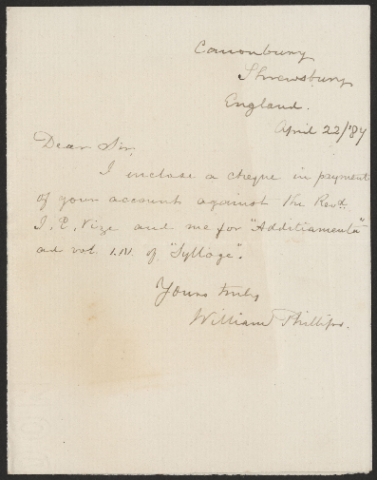 Canonbury
Shrewsbury
England.
April 22/'87
Dear Sir,
I inclose a cheque in payment
of your account against the Revd.
J. E. Vize and me for "Additiamenta"
ad vol. I.IV. of "Sylloge".
Yours truly
William Phillips.